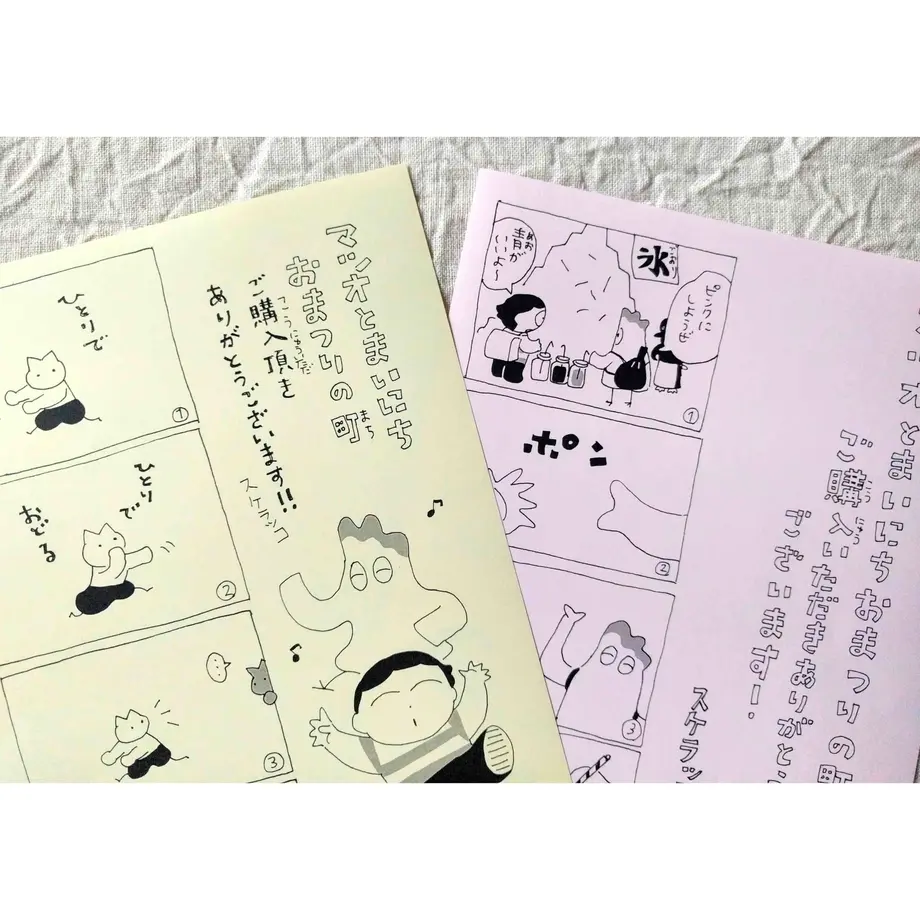 マツオとまいにち
おまつりの町
まち
ご購入頂き
こうにゅういただ
ありがとうございます!!
スケラッコ
ひとりで
①
ひとり
で
おどる
②
③
オとまいにちおまつりの町
ご購入いただきありがと
こうにゅう
ございますー.
スケラッ
氷
こおり
ピンクに
しようぜ
青が
あお
いいよ〜
①
ポン
②
③